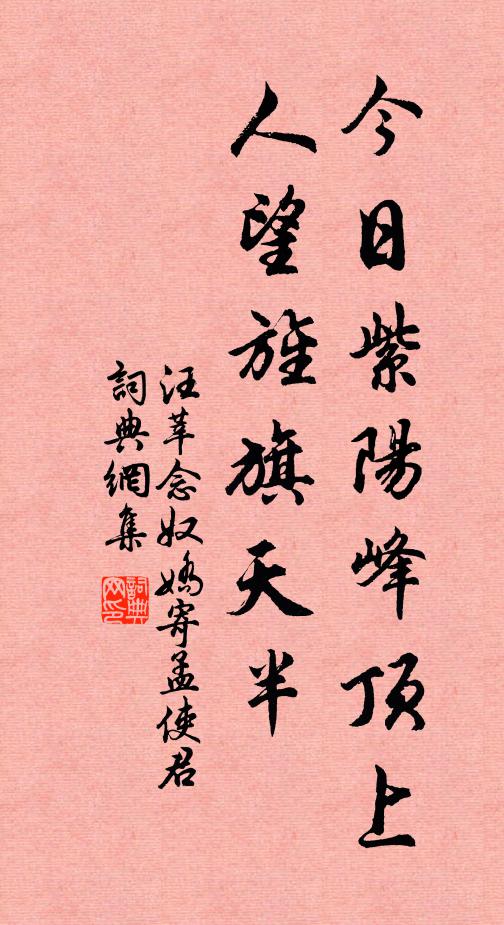 今日紫陽峰頂上
人望旌旗天半
汪莘念奴嬌寄孟使君
詞典網集
詞典網印